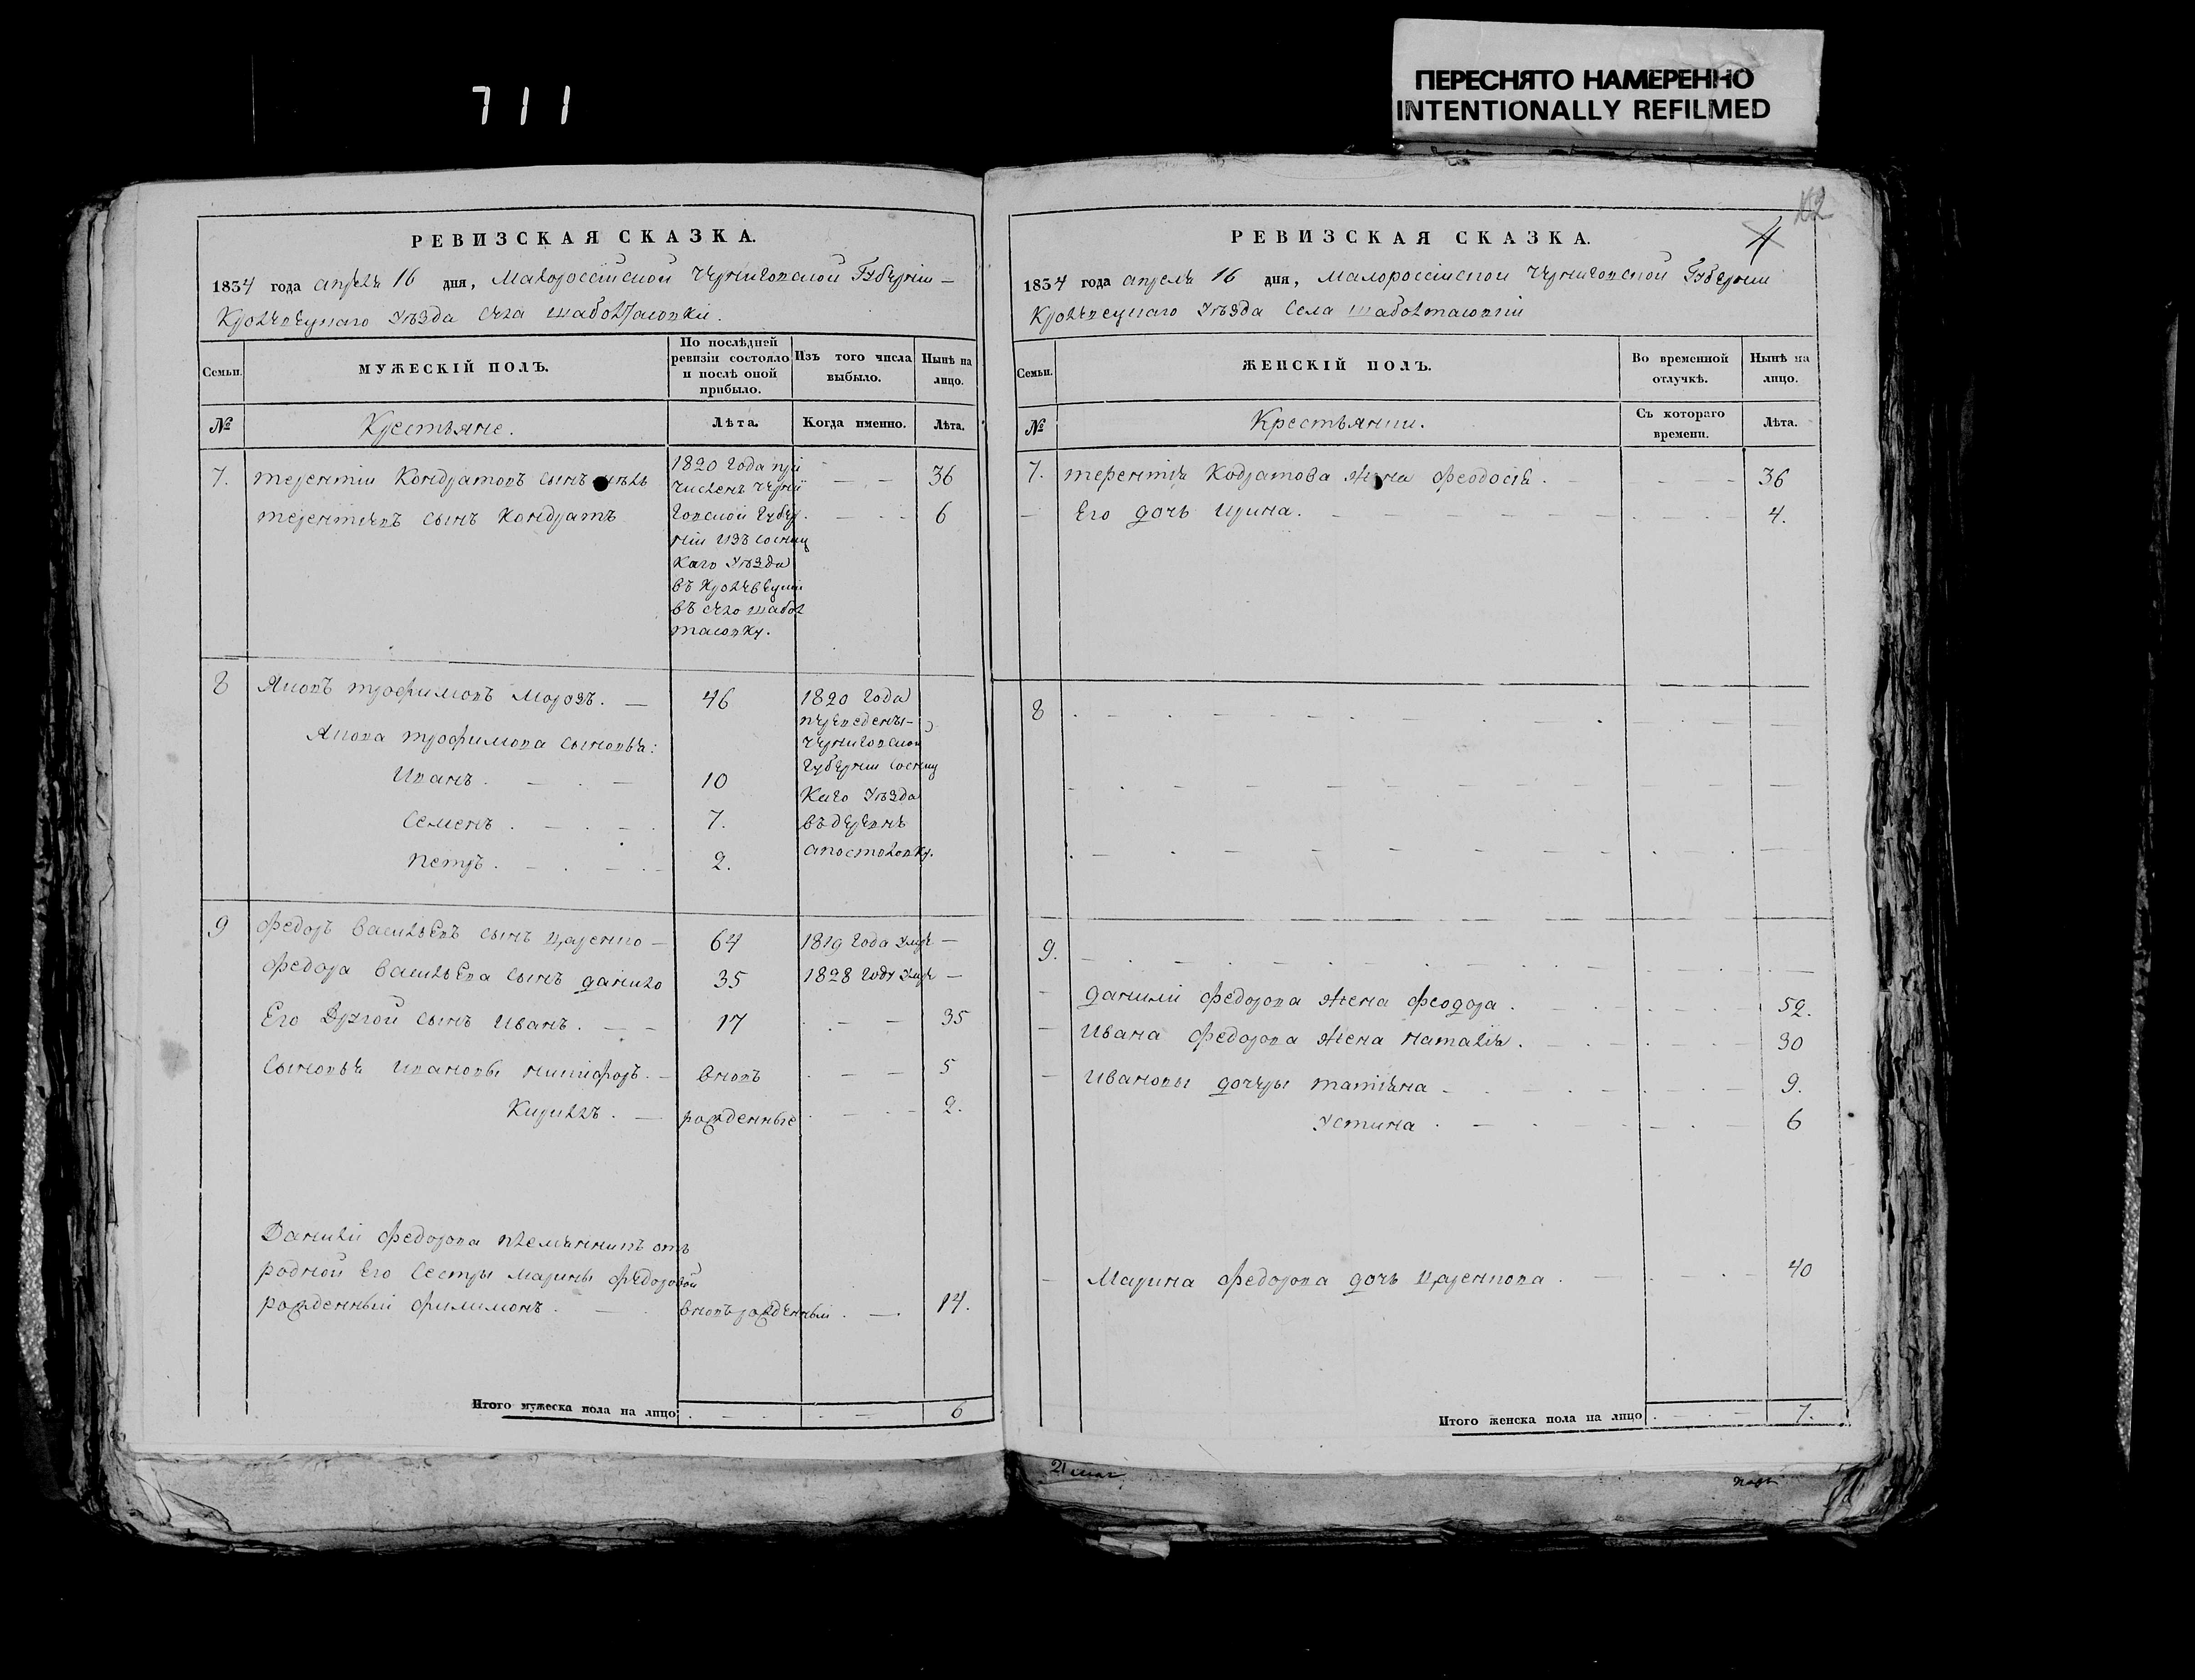 711
ПЕРЕСНЯТО НАМЕРЕННО
INTENTIONALLY REFILMED
РЕВИЗСКАЯ СКАЗКА.
1834 года апреля 16 дня, Малороссійской Черниговской Губерніи
Кролевецкаго Уѣзда села
Семьи.
МУЖЕСКІЙ ПОЛЪ.
По послѣдней ревизіи состояло и послѣ оной прибыло.
Изъ того числа выбыло.
Нынѣ на лицо.
№
Крестьяне.
Лѣта.
Когда именно.
Лѣта.
7. терентіи Кондратовъ сынъ
1820 года при
численъ Черни
36
терентіевъ сынъ Кондратъ
говской губер.
6
ніи изъ сосниц
каго Уѣзда
въ Кролевецкій
въ село шабол
тасовку.
8 Яковъ трофимовъ морозъ.
46
1820 года
переведены
Якова трофимова сыновья:
Черниговской
губерніи сосниц
Иванъ.
10
каго Уѣзда
Семенъ.
7.
въ деревнѣ
петръ.
2.
апостоловку.
9 Федоръ васильевъ сынъ
64
1819 года умре
Федора васильева сынъ данило
35
1828 году умре
Его Другой сынъ Иванъ.
17
35
Сыновья Ивановы никифоръ.
вновь
5
Кирилъ.
рожденные
2.
Даниліи Федорова племянникъ отъ
родной Его Сестры Марины Федоровой
рожденный филимонъ.
вновь рожденный
14.
Итого мужеска пола на лицо
6
102
4
РЕВИЗСКАЯ СКАЗКА.
1834 года апреля 16 дня, Малороссійской Черниговской Губерніи
Кролевецкаго Уѣзда Села
Семьи.
ЖЕНСКІЙ ПОЛЪ.
Во временной отлучкѣ.
Нынѣ на лицо.
№
Крестьянки.
Съ котораго времени.
Лѣта.
7. терентія Кодратова жена феодосія.
36
Его дочь Ирина.
4.
8
9.
даниліи федорова жена феодора.
52.
Ивана федорова жена наталія.
30
Ивановы дочеры татіяна
9.
Устина
6
Марина федорова дочь
40
Итого женска пола на лицо
7.